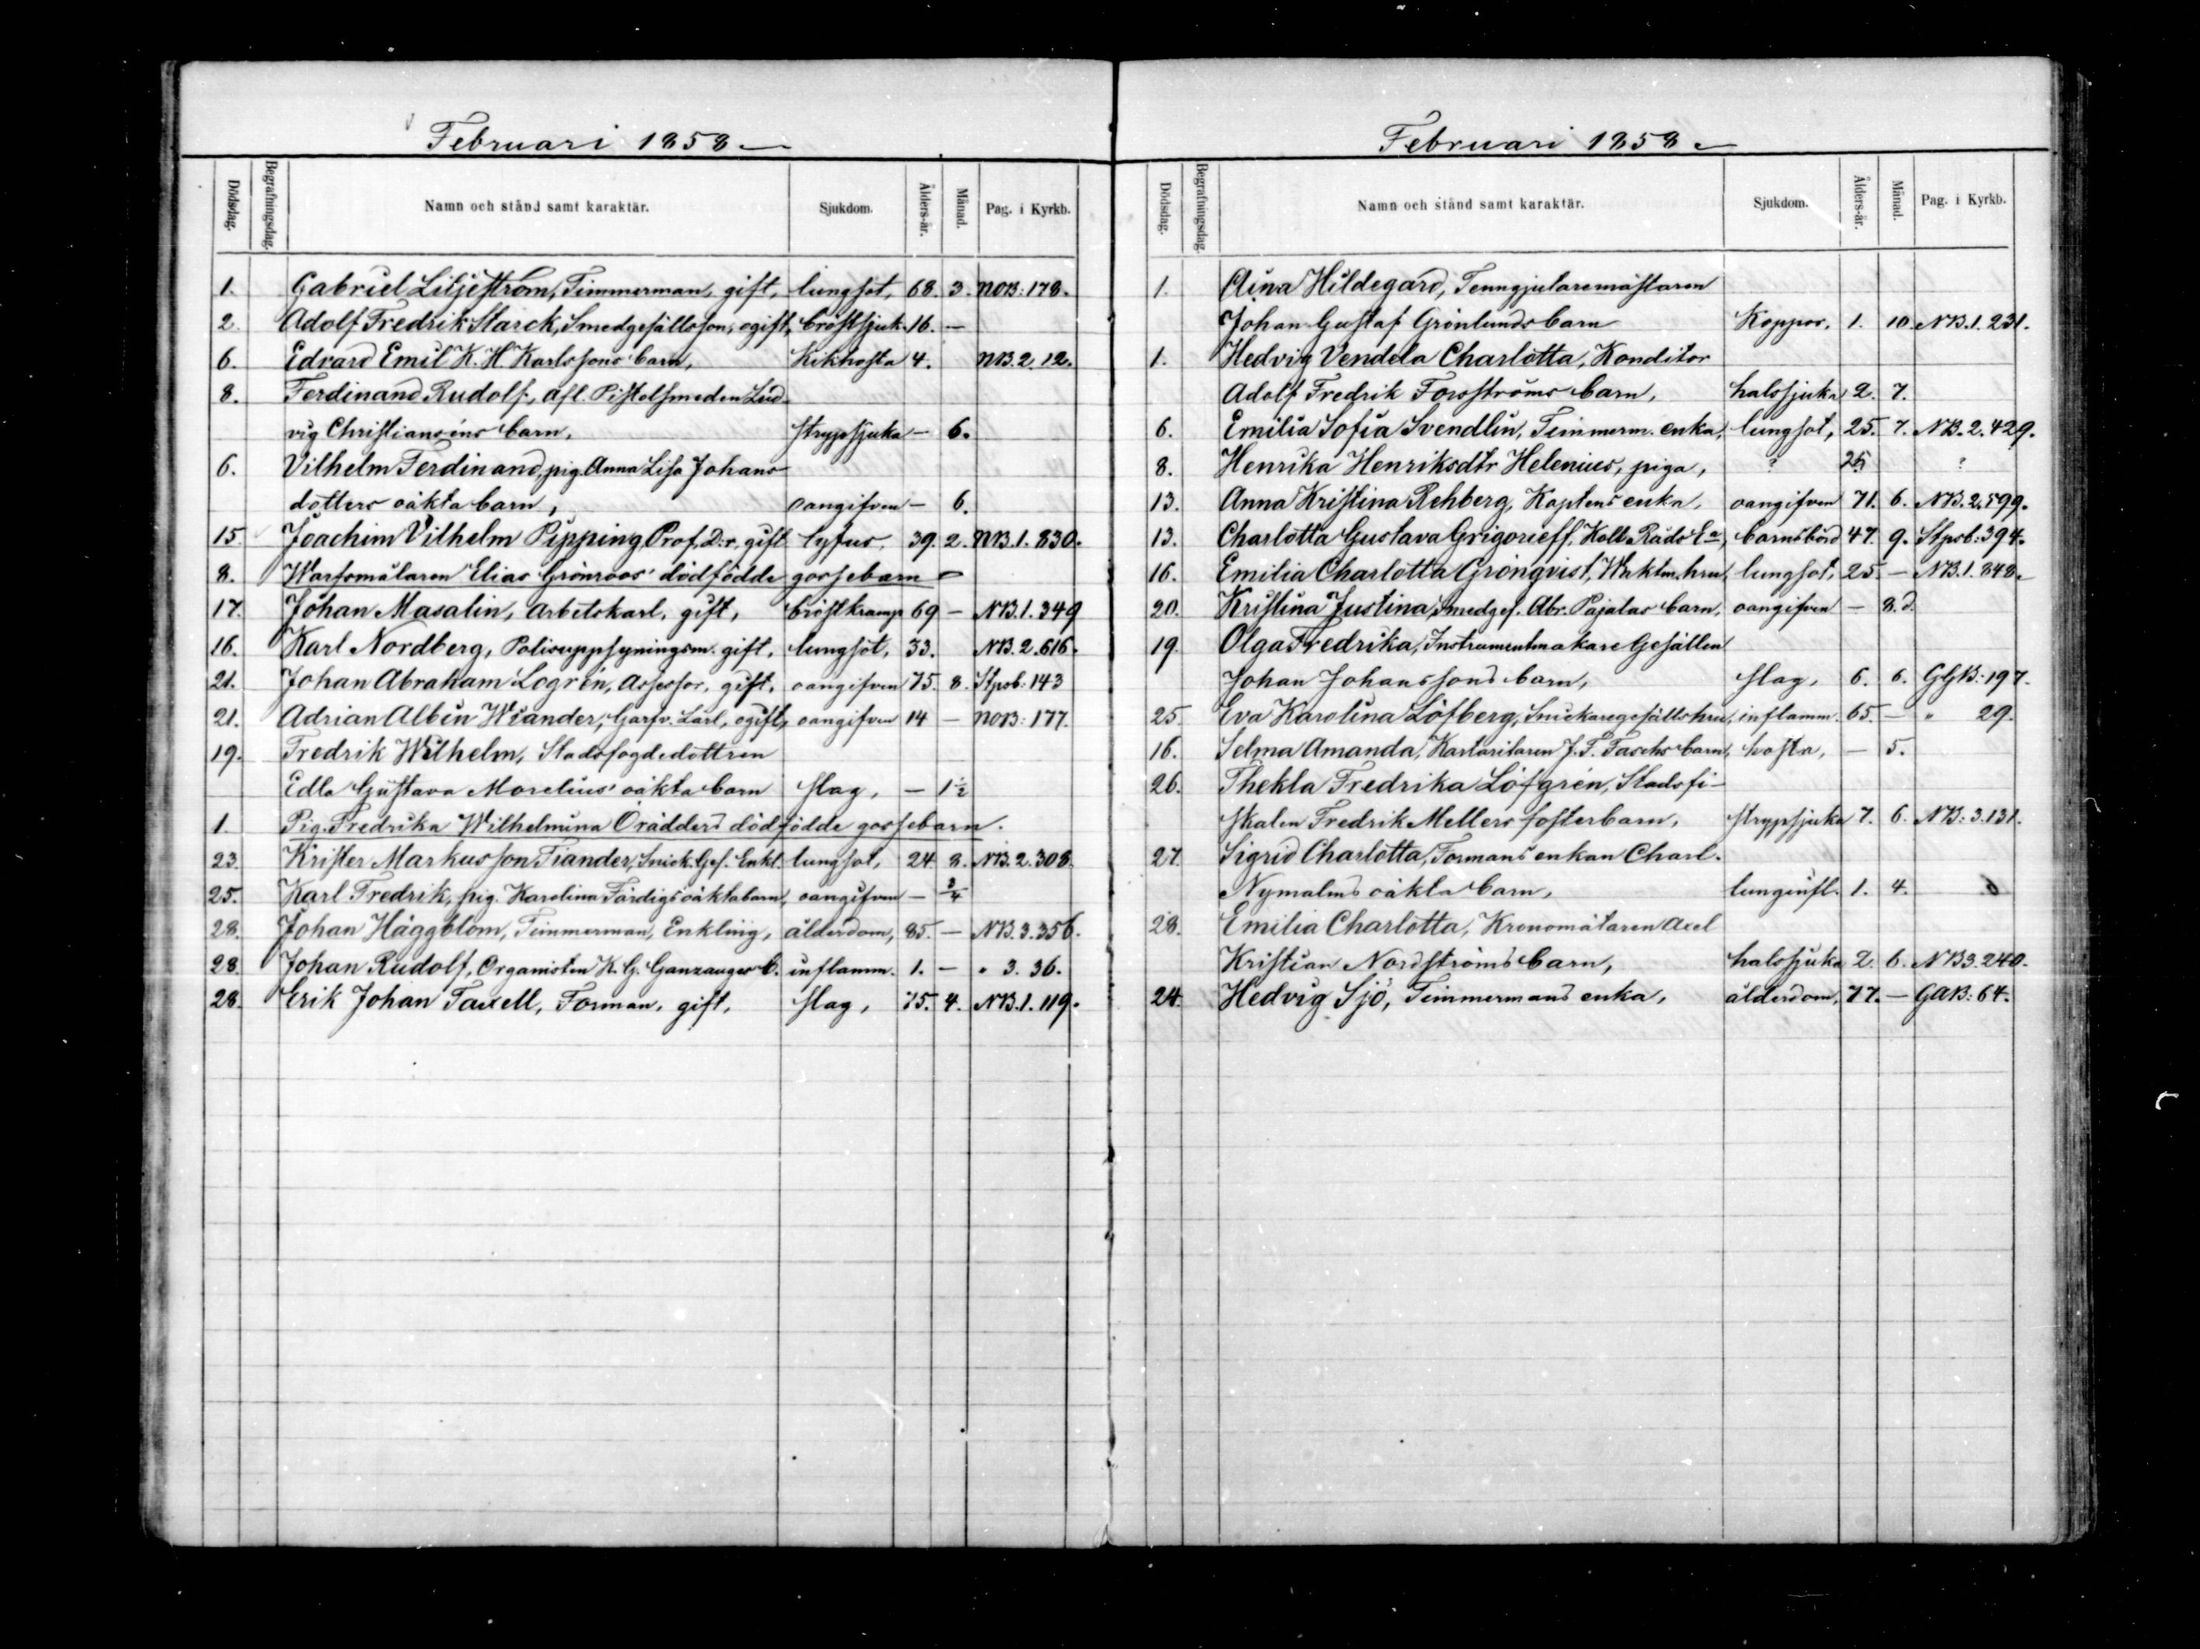 Februari 1858
Dödsdag. Begrafningsdag. Namn och stånd samt karaktär. Sjukdom. Ålders-år. Månad. Pag. i Kyrkb.
1. Gabriel Liljeström, Timmerman, gift, lungsot, 68. 3. NOB: 178.
2. Adolf Fredrik Starck, Smedgesällsson, ogift, bröstsjuk. 16. —
6. Edvard Emil K. H. Karlssons barn, Kikhosta 4. NB. 2. 12.
8. Ferdinand Rudolf, afl. Pistolsmeden Lud-
vig Christianséns barn, strypsjuka — 6.
6. Vilhelm Ferdinand, pig. Anna Lisa Johans-
dotters oäkta barn, oangifven — 6.
15. Joachim Vilhelm Pipping, Prof. D:r, gift tyfus, 39. 2. NB. 1. 830.
8. Warfsmålaren Elias Grönroos' dödfödde gossebarn —
17. Johan Masalin, Arbetskarl, gift, bröstkramp 69 — NB. 1. 349
16. Karl Nordberg, Polisuppsyningsm. gift, lungsot, 33. NB. 2. 616.
21. Johan Abraham Logrén, Assessor, gift, oangifven 75. 8. Stpsb. 143
21. Adrian Albin Wiander, Garfv. Lärl., ogift, oangifven 14 — NOB: 177.
19. Fredrik Wilhelm, Stadsfogdedottren
Edla Gustava Morelius' oäkta barn slag, — 1½
1. Pig. Fredrika Wilhelmina Orädders dödfödde gossebarn.
23. Krister Markusson Tiander, Snick. Ges. Enkl. lungsot, 24 8. NB. 2. 308.
25. Karl Fredrik, pig. Karolina Färdigs oäkta barn, oangifven — ¾
28. Johan Häggblom, Timmerman, Enkling, ålderdom, 85. — NB. 3. 356.
28. Johan Rudolf, Organisten K. G. Ganzauges b. inflamm. 1. — " 3. 36.
28. Erik Johan Taxell, Forman, gift, slag, 75. 4. NB. 1. 119.
Februari 1858
Dödsdag. Begrafningsdag. Namn och stånd samt karaktär. Sjukdom. Ålders-år. Månad. Pag. i Kyrkb.
1. Aina Hildegard, Tenngjutaremästaren
Johan Gustaf Grönlunds barn Koppor, 1. 10. NB. 1. 231.
1. Hedvig Vendela Charlotta, Konditor
Adolf Fredrik Forsströms barn, halssjuka 2. 7.
6. Emilia Sofia Svendlin, Timmerm. enka, lungsot, 25. 7. NB. 2. 429.
8. Henrika Henriksdtr Helenius, piga, ? 25 ?
13. Anna Kristina Rehberg, Kaptens enka, oangifven 71. 6. NB. 2. 599.
13. Charlotta Gustava Grigorieff, Koll. Råds Ea, barnsbörd 47. 9. Stpsb: 394.
16. Emilia Charlotta Grönqvist, Waktm. hru, lungsot, 25. — NB. 1. 848.
20. Kristina Justina, Smedges. Abr. Pajalas barn, oangifven — 8. d.
19. Olga Fredrika, Instrumentmakare Gesällen
Johan Johanssons barn, slag, 6. 6. GGB: 197.
25. Eva Karolina Löfberg, Snickaregesälls hru, inflamm. 65. — " 29.
16. Selma Amanda, Kartritaren J. F. Taschs barn, hosta, — 5.
26. Thekla Fredrika Löfgrén, Stadsfi-
skalen Fredrik Mellers fosterbarn, strypsjuka 7. 6. NB: 3. 131.
27. Sigrid Charlotta, Formans enkan Charl.
Nymalms oäkta barn, lunginfl. 1. 4.
28. Emilia Charlotta, Kronomätaren Axel
Kristian Nordströms barn, halssjuka 2. 6. NB 3. 240.
24. Hedvig Sjö, Timmermans enka, ålderdom, 77. — GAB: 64.